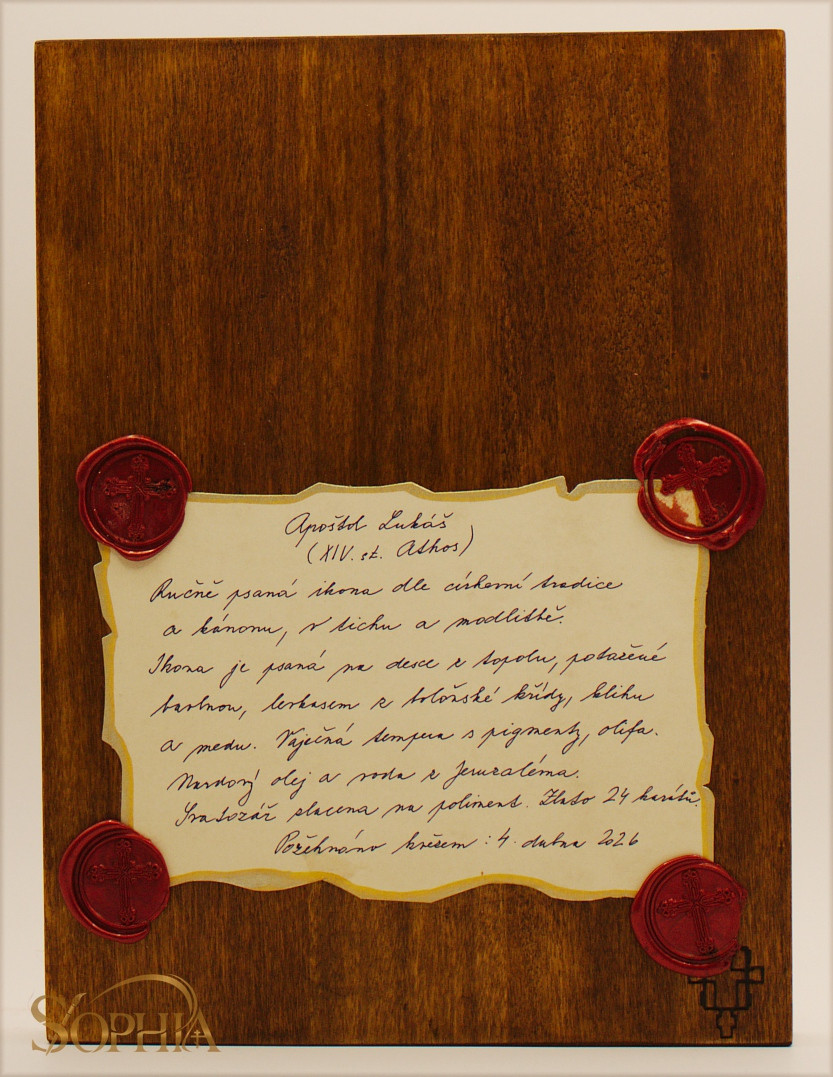 Apoštol Lukáš
(XIV. st. Athos)
Ručně psaná ikona dle církevní tradice
a kánonu, v tichu a modlitbě.
Ikona je psaná na desce z topolu, potažené
bavlnou, levkasem z boloňské křídy, klihu
a medu. Vaječná tempera s pigmenty, olifa.
Nardový olej a voda z Jeruzaléma.
Svatozář zlacena na poliment. Zlato 24 karátů.
Požehnáno knězem : 4. dubna 2026
SOPHIA